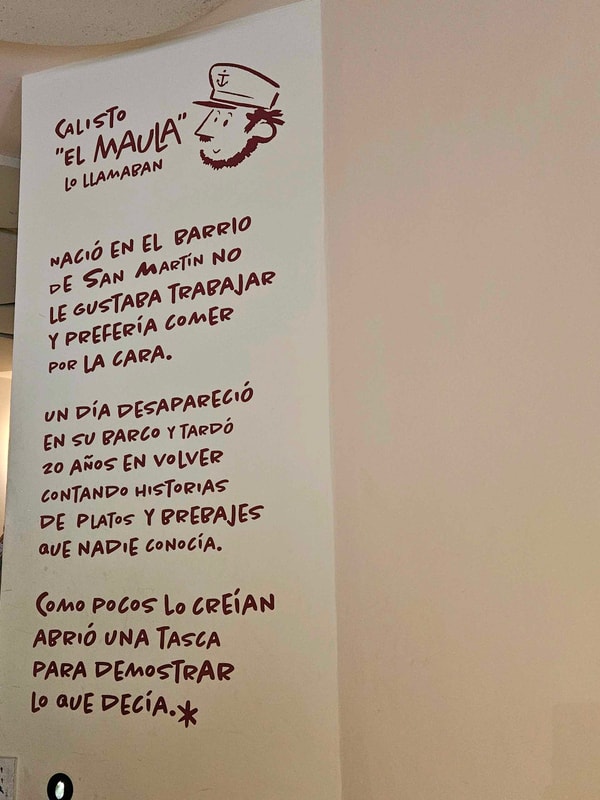 CALISTO
"EL MAULA"
LO LLAMABAN
NACIÓ EN EL BARRIO
DE SAN MARTÍN NO
LE GUSTABA TRABAJAR
Y PREFERÍA COMER
POR LA CARA.
UN DÍA DESAPARECIÓ
EN SU BARCO Y TARDÓ
20 AÑOS EN VOLVER
CONTANDO HISTORIAS
DE PLATOS Y BREBAJES
QUE NADIE CONOCÍA.
COMO POCOS LO CREÍAN
ABRIÓ UNA TASCA
PARA DEMOSTRAR
LO QUE DECÍA.*